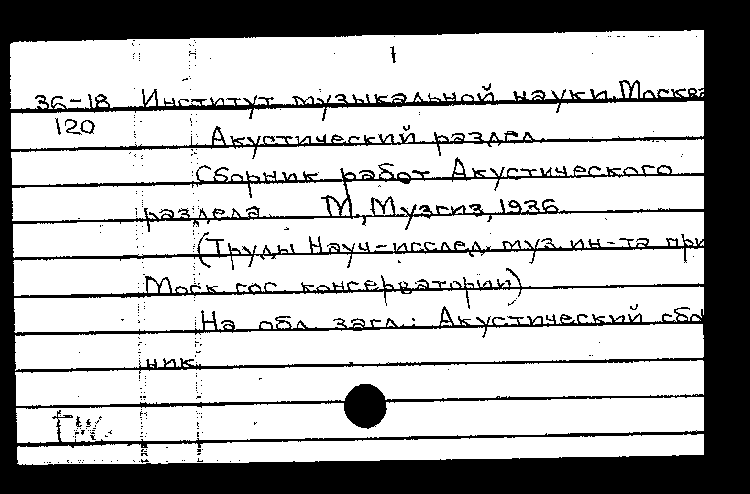 1
36-18 Институт музыкальной науки. Москва
120 Акустический раздел.
Сборник работ Акустического
раздела. М., Музгиз, 1936.
(Труды Науч-исслед. муз. ин-та при
Моск. гос. консерватории)
На обл. загл.: Акустический сбо
ник.